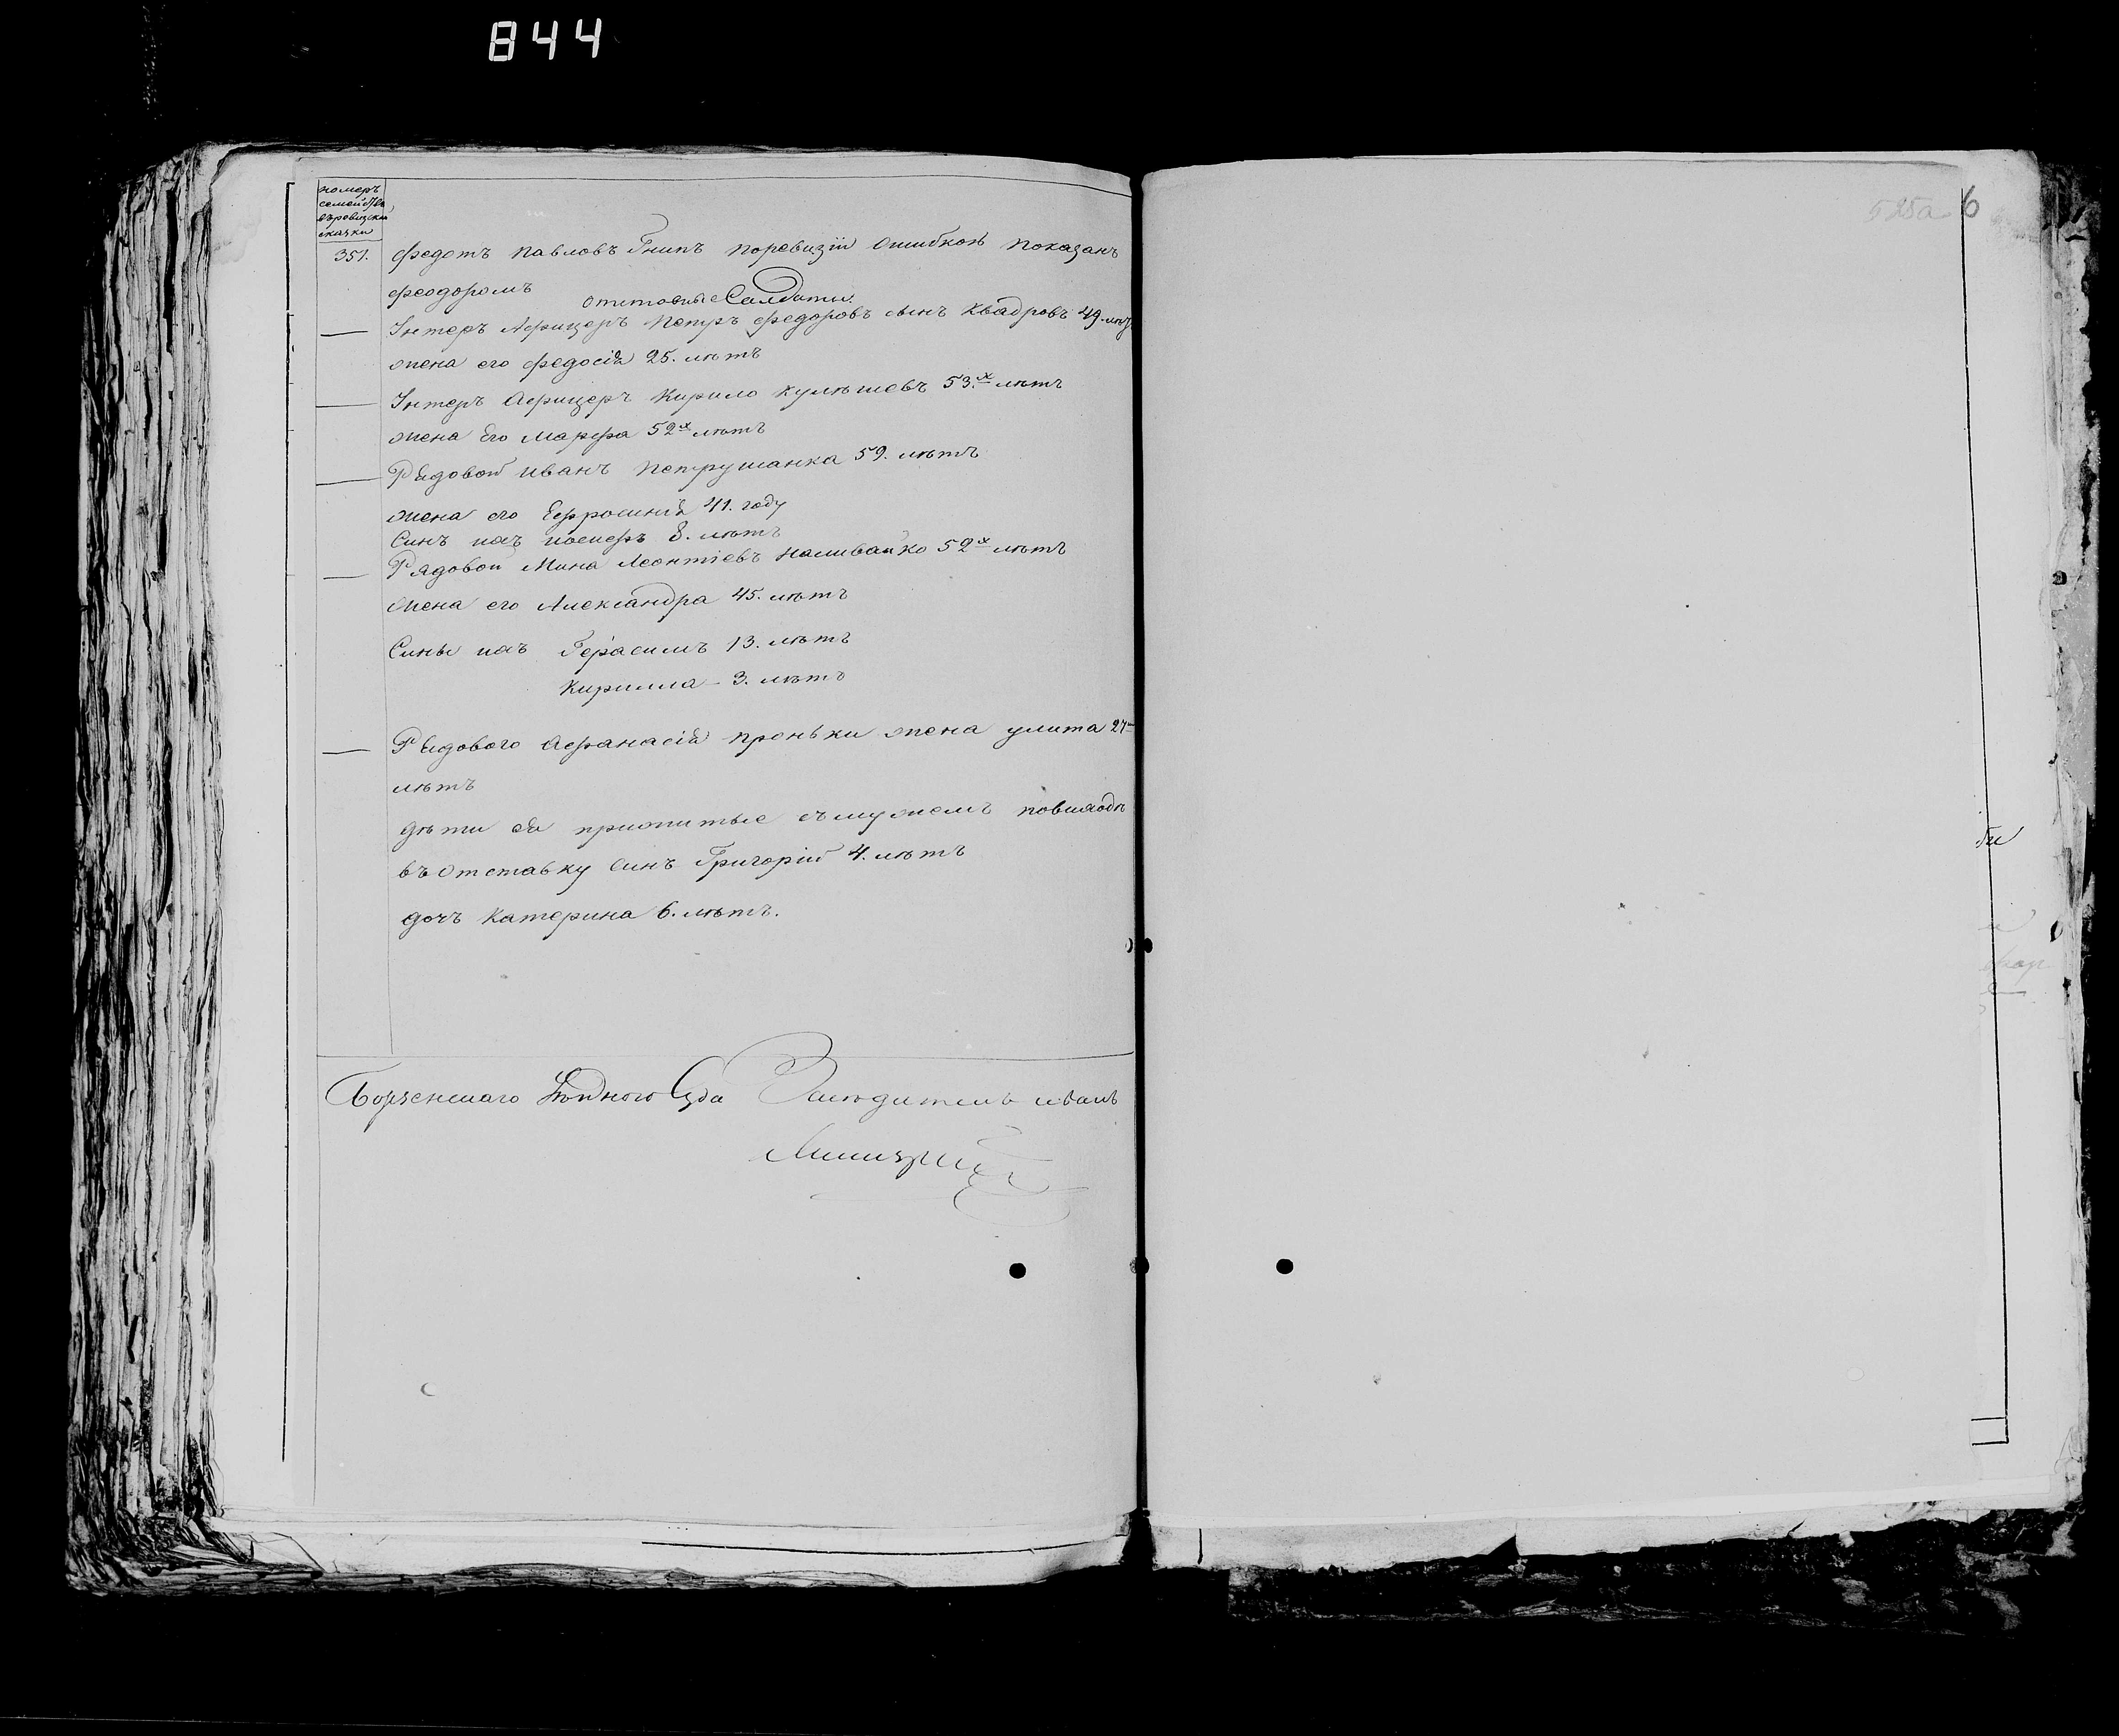 844
525а 6
номеръ
семейства
въ ревизской
сказки
351. Федотъ Павловъ Гнипъ поревизіи ошибкою показанъ
Феодоромъ
отставные Салдаты.
Унтеръ Афицеръ Петръ Федоровъ сынъ Квадровъ 49. лѣтъ
жена его Федосія 25. лѣтъ
Унтеръ Афицеръ Кирило Кулѣшевъ 53.х лѣтъ
жена Его Марфа 52х лѣтъ
Рядовой Иванъ Петрушанка 59. лѣтъ
жена его Ефросинія 41. году
Синъ ихъ 8. лѣтъ
Рядовой Мина Леонтіевъ Наливайко 52х лѣтъ
жена его Александра 45. лѣтъ
Сины ихъ Герасимъ 13. лѣтъ
Кирилла 3. лѣтъ
Рядового Афанасія Проньки жена Улита 27
лѣтъ
дѣти ея прижитые съ мужемъ повиходѣ
въ отставку Синъ Григорій 4. лѣтъ
дочъ Катерина 6. лѣтъ.
Борзенскаго Суда Засѣдатель Иванъ